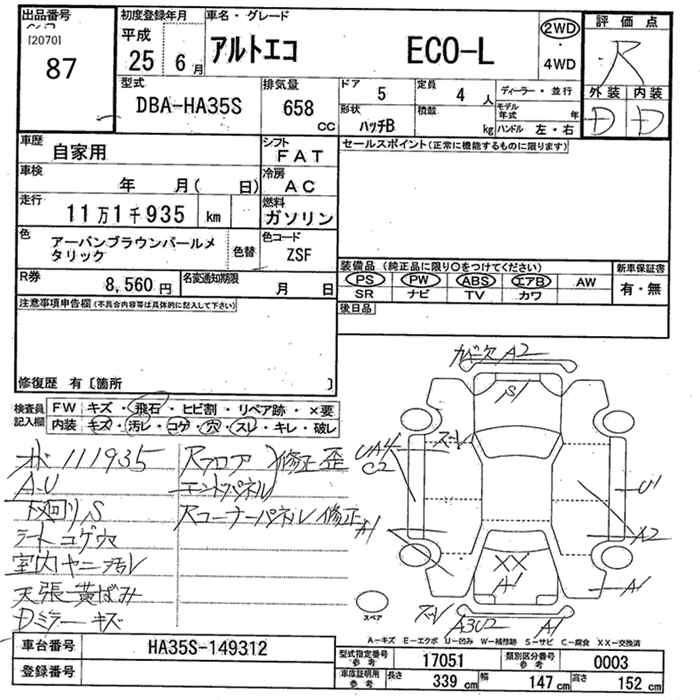 出品番号
[2070]
87
初度登録年月
平成
25 6 月
車名・グレード
アルトエコ ECO-L
2WD
・
4WD
評価点
R
外装 内装
D D
型式
DBA-HA35S
排気量
658 CC
ドア
5
定員
4 人
形状
ハッチB
積載
kg
ディーラー・並行
モデル年式 年
ハンドル 左・右
車歴
自家用
シフト
FAT
車検
年 月( 日)
冷房
AC
走行
11万1千935 km
燃料
ガソリン
色
アーバンブラウンパールメタリック
色替
色コード
ZSF
R券
8,560 円
名変通知期限
月 日
セールスポイント(正常に機能するものに限ります)
装備品(純正品に限り○をつけてください)
PS PW ABS エアB AW
SR ナビ TV カワ
新車保証書
有・無
後日品
注意事項申告欄(不具合内容等は具体的に記入して下さい)
修復歴 有〔箇所 〕
検査員記入欄
FW キズ・飛石・ヒビ割・リペア跡・×要
内装 キズ・汚レ・コゲ・穴・スレ・キレ・破レ
111935
A.U
下廻りS
シートコゲ穴
室内ヤニ汚レ
天張黄ばみ
Dミラーキズ
Rフロア
エンドパネル
修正歪
Rコーナーパネル修正
カバー欠 A2
S1
スレ
C2
U1
A1
A2
XX
A1
A1
スレ
A3U2
A1
スペア
A-キズ E-エクボ U-凹み W-補修跡 S-サビ C-腐食 XX-交換済
車台番号
HA35S-149312
登録番号
型式指定番号 参考
17051
類別区分番号 参考
0003
車庫証明用 参考
長さ 339 cm
幅 147 cm
高さ 152 cm